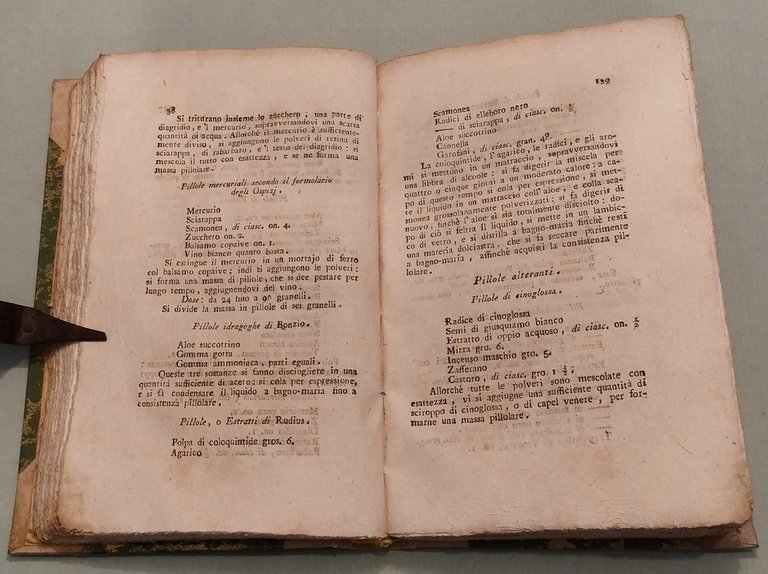 38
Si triturano insieme lo zucchero, una parte di
diagridio, e 'l mercurio, sopravversandovi una scarsa
quantità di acqua. Allorchè il mercurio è sufficiente-
mente diviso, si aggiungono le polveri di resina di
sciarappa, di rabarbaro, e 'l resto del diagridio: si
mescola il tutto con esattezza, e se ne forma una
massa pillolare.
Pillole mercuriali secondo il formolario
degli Ospizj.
Mercurio
Sciarappa
Scamonea, di ciasc. on. 4.
Zucchero on. 2.
Balsamo copaive on. 1.
Vino bianco quanto basta.
Si estingue il mercurio in un mortajo di ferro
col balsamo copaive; indi si aggiungono le polveri:
si forma una massa di pillole, che si dee pestare per
lungo tempo, aggiugnendovi del vino.
Dose: da 24 fino a 90 granelli.
Si divide la massa in pillole di sei granelli.
Pillole idragoghe di Bonzio.
Aloe succotrino
Gomma gotta
Gomma ammoniaca, parti eguali.
Queste tre sostanze si fanno disciogliere in una
quantità sufficiente di aceto: si cola per espressione,
e si fa condensare il liquido a bagno-maria fino a
consistenza pillolare.
Pillole, o Estratti di Rudius.
Polpa di coloquintide gros. 6.
Agarico
139
Scamonea
Radici di elleboro nero
—— di sciarappa, di ciasc. on. ½
Aloe succotrino
Cannella
Garofani, di ciasc. gran. 48.
La coloquintide, l'agarico, le radici, e gli aro-
mi si mettono in un matraccio, sopravversandovi
una libbra di alcoole: si fa digerir la miscela per
quattro o cinque giorni a un moderato calore: a ca-
po di questo tempo si cola per espressione, si met-
te il liquido in un matraccio coll'aloe, e colla sca-
monea grossolanamente polverizzati: si fa digerir di
nuovo, finchè l'aloe si sia totalmente disciolto: do-
po di ciò si feltra il liquido, si mette in un lambic-
co di vetro, e si distilla a bagno-maria finchè resti
una materia dolciastra, che si fa seccare parimente
a bagno-maria, affinchè acquisti la consistenza pil-
lolare.
Pillole alteranti.
Pillole di cinoglossa.
Radice di cinoglossa
Semi di giusquiamo bianco
Estratto di oppio acquoso, di ciasc. on. ½
Mirra gro. 6.
Incenso maschio gro. 5.
Zafferano
Castoro, di ciasc. gro. 1 ½.
Allorchè tutte le polveri sono mescolate con
esattezza, vi si aggiugne una sufficiente quantità di
sciroppo di cinoglossa, o di capel venere, per for-
marne una massa pillolare.